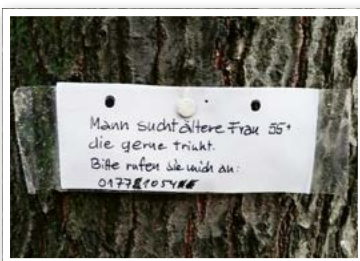 Mann sucht ältere Frau 55+
die gerne trinkt.
Bitte rufen sie mich an: